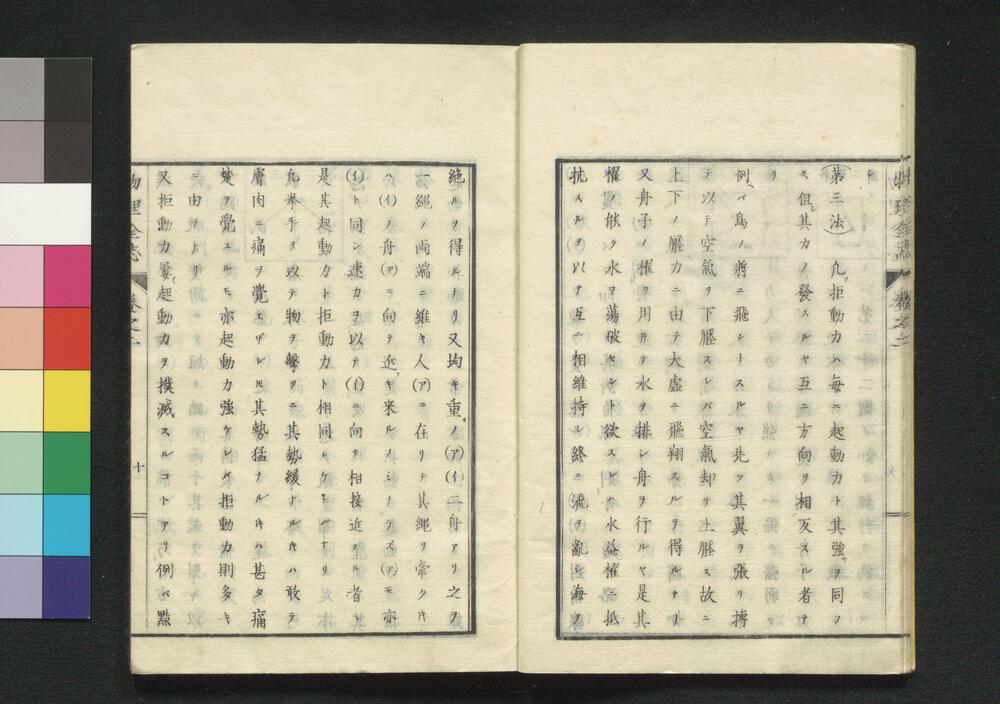 リ
第三法 凢拒動力ハ每ニ起動力ト其强ヲ同フ
ス但其力ノ發スルヤ互ニ方向ヲ相反スル者ナ
リ
例ヘバ鳥ノ將ニ飛ントスルヤ先ツ其翼ヲ張リ搏
テ以テ空氣ヲ下壓スレバ空氣却テ上壓ス故ニ
上下ノ壓力ニ由テ大虛ニ飛翔スルヲ得ルナリ
又舟子ノ櫂ヲ用井テ水ヲ排シ舟ヲ行ルヤ是其
櫂ノ能ク水ヲ蕩破セント欲スレバ水益櫂ニ抵
抗スルヲ以テ互ニ相維持シ終ニ流ヲ亂シ海ヲ
絶ルヲ得ルナリ又均キ重ノ(ア)(イ)二舟アリ之ヲ
一繩ノ両端ニ維キ人(ア)ニ在リテ其繩ヲ牽クキ
ハ(イ)ノ舟(ア)ニ向テ近キ来ルノミナラズ(ア)モ亦
(イ)ト同シ速力ヲ以テ(イ)ニ向テ相接近スル者
是其起動力ト拒動力ト相同シケレバナリ
凢拳手ヲ以テ物ヲ擊ツニ其勢緩ナルキハ敢テ
膚肉ニ痛ヲ覺エザレモ其勢猛ナルキハ甚タ痛
楚ヲ覺ユルモ亦起動力强ケレバ拒動力則多キ
ニ由テナリ
又拒動力屢起動力ヲ撲滅スルコトアリ例バ黙
物理全志 卷之二 十